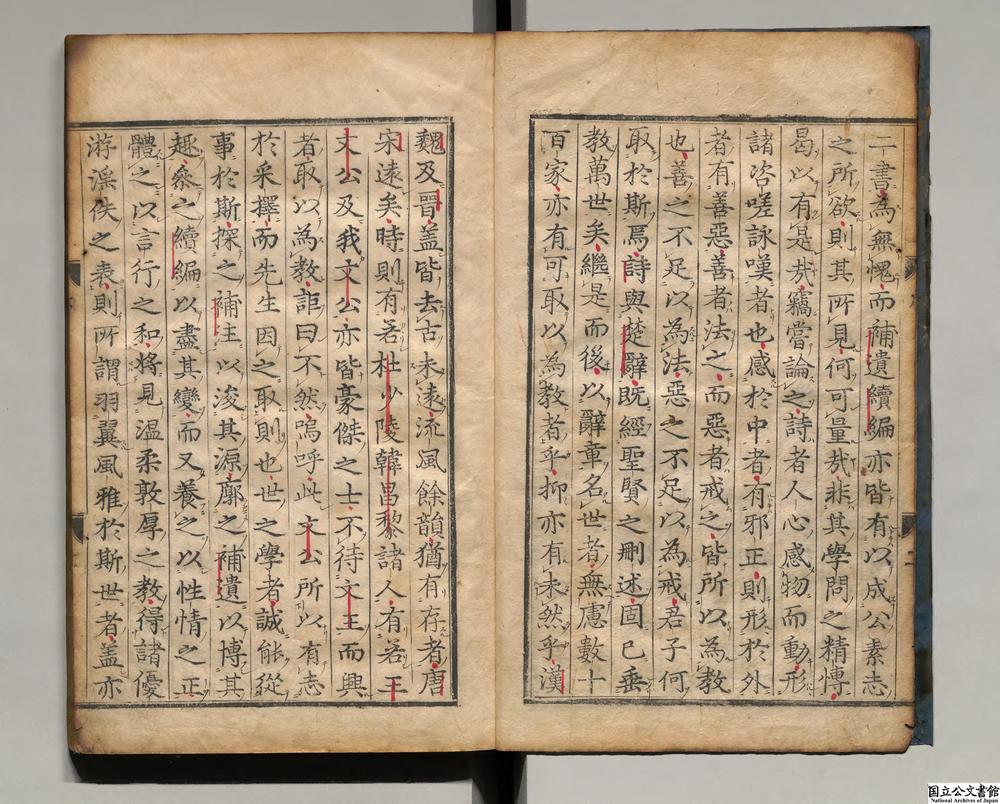 二書為無愧而補遺續編亦皆有以成公素志
之所欲則其所見何可量㢤非其學問之精慱
曷以有是㢤竊嘗論之詩者人心感物而動形
諸咨嗟詠嘆者也感於中者有邪正則形於外
者有善惡善者法之而惡者戒之皆所以為教
也善之不足以為法惡之不足以為戒君子何
取於斯焉詩與楚辭旣經聖賢之刪述固已垂
教萬世矣繼是而後以辭章名世者無慮數十
百家亦有可取以為教者乎抑亦有未然乎漢
魏及晉盖皆去古未遠流風餘韻猶有存者唐
宋遠矣時則有若杜少陵韓昌黎諸人有若王
文公及我文公亦皆豪傑之士不待文王而興
者取以為教詎曰不然嗚呼此文公所以有志
於采擇而先生因之取則也世之學者誠能從
事於斯探之補註以浚其源廓之補遺以博其
趣叅之續編以盡其變而又養之以性情之正
體之以言行之和將見温柔敦厚之教得諸優
游滛佚之表則所謂羽翼風雅於斯世者盖亦
国立公文書館
National Archives of Japan